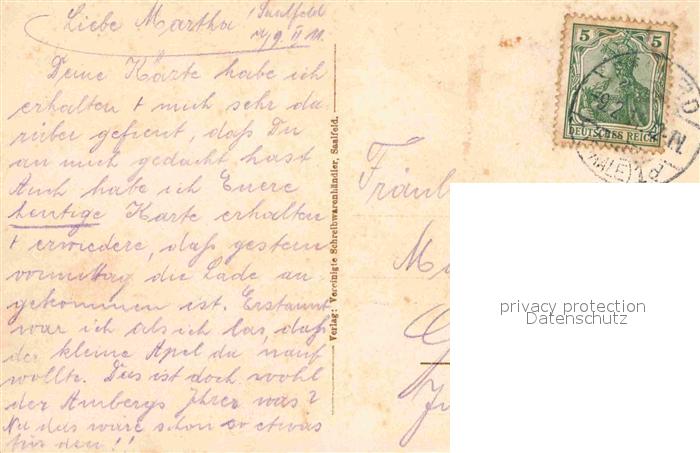 Liebe Martha! Saalfeld
d. 9. II 11.
Deine Karte habe ich
erhalten + mich sehr da-
rüber gefreut, daß Du
an mich gedacht hast
Auch habe ich Euere
heutige Karte erhalten
+ erwiedere, daß gestern
vormittag die Lade an-
gekommen ist. Erstaunt
war ich als ich las, daß
der kleine Apel da 'nauf
wollte. Das ist doch wohl
der Ambergs Ihrer was?
Na das wäre schon so etwas
für den!!
Verlag: Vereinigte Schreibwarenhändler, Saalfeld.
5 5
DEUTSCHES REICH
Fräul
privacy protection
Datenschutz